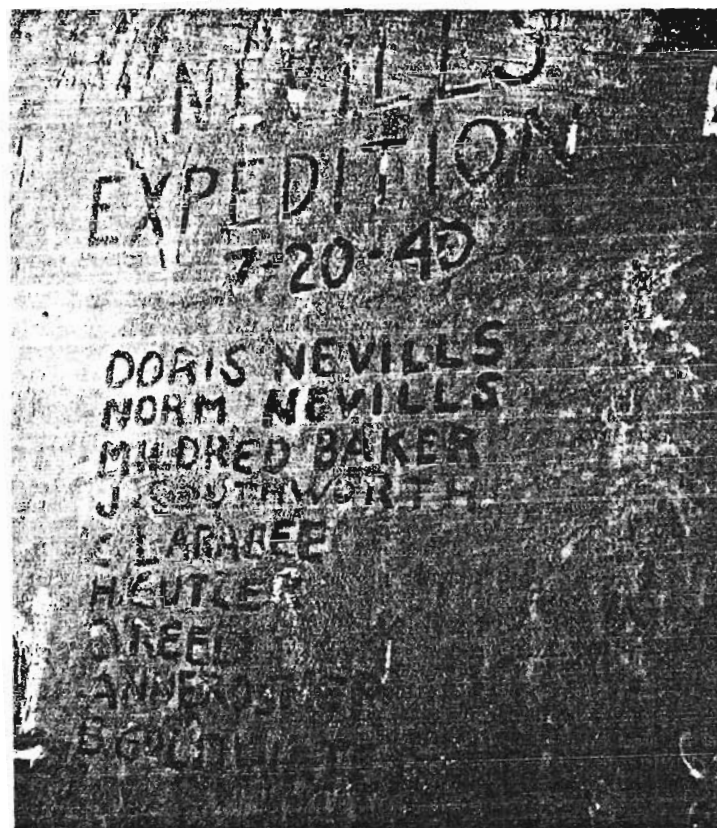 NEVILLS
EXPEDITION
7-20-40
DORIS NEVILLS
NORM NEVILLS
MILDRED BAKER
J SOUTHWORTH
LARABEE
H.CUTLER
D.REED
ANNE